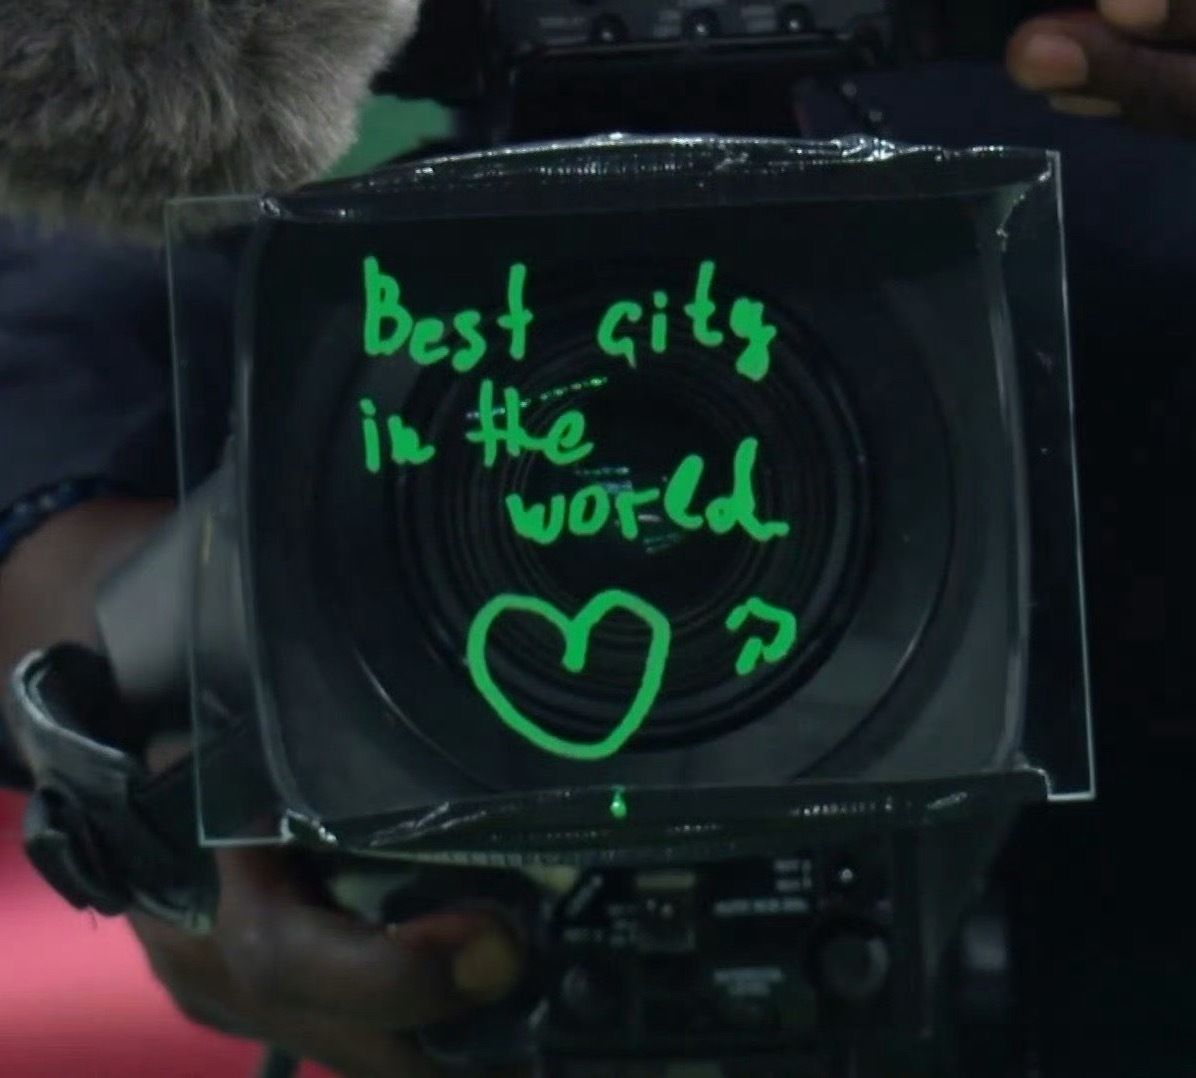 Best city
in the
world